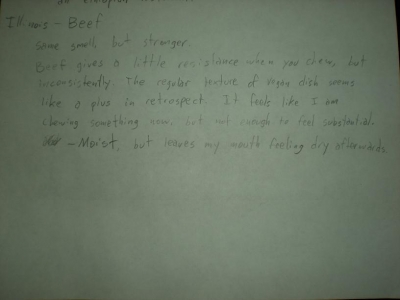 Illinois - Beef
same smell, but stronger.
Beef gives a little resistance when you chew, but
inconsistently. The regular texture of vegan dish seems
like a plus in retrospect. It feels like I am
chewing something now, but not enough to feel substantial.
- Moist, but leaves my mouth feeling dry afterwards